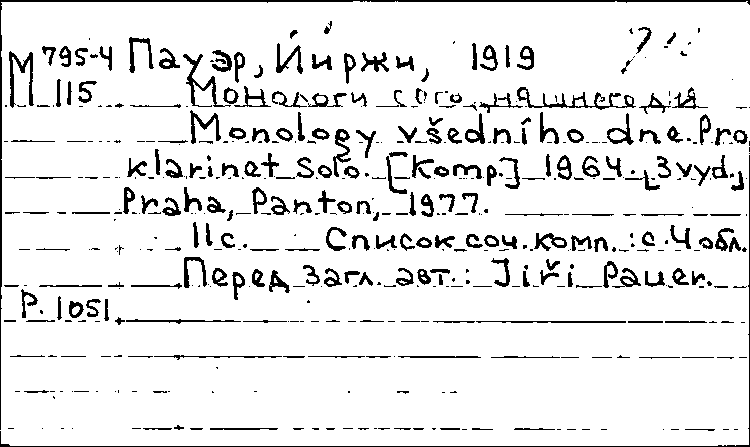 М 795-4 Пауэр, Йиржи, 1919
115 Монологи сегодняшнего дня
Monology všedního dne. Pro
klarinet solo. [Komp.] 1964. [3 vyd.]
Praha, Panton, 1977.
11 с. Список соч. комп.: с. 4 обл.
Перед загл. авт.: Jiří Pauer.
Р. 1051